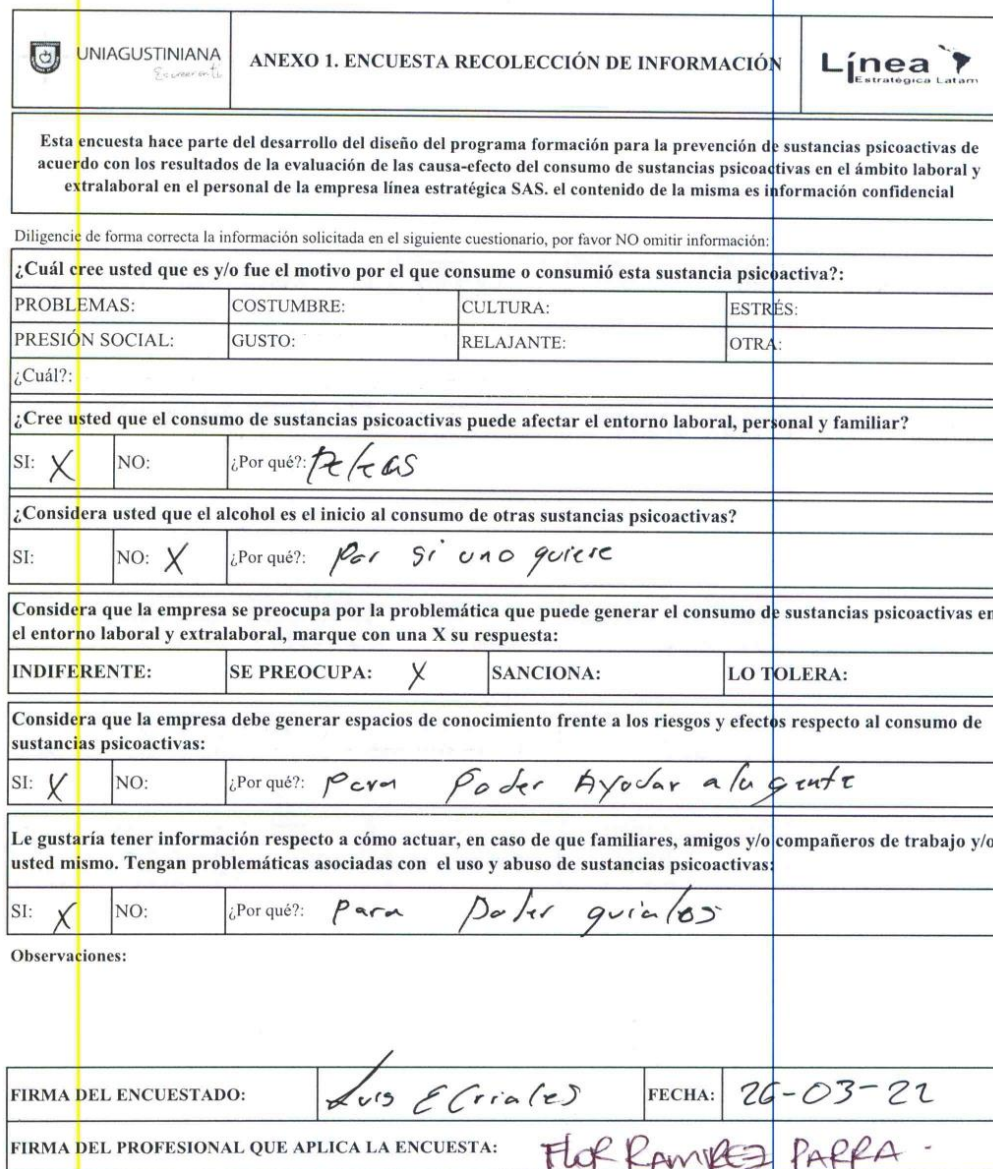 UNIAGUSTINIANA
ANEXO 1. ENCUESTA RECOLECCIÓN DE INFORMACIÓN
Línea
Estratégica Latam
Esta encuesta hace parte del desarrollo del diseño del programa formación para la prevención de sustancias psicoactivas de
acuerdo con los resultados de la evaluación de las causa-efecto del consumo de sustancias psicoactivas en el ámbito laboral y
extralaboral en el personal de la empresa línea estratégica SAS. el contenido de la misma es información confidencial
Diligencie de forma correcta la información solicitada en el siguiente cuestionario, por favor NO omitir información:
¿Cuál cree usted que es y/o fue el motivo por el que consume o consumió esta sustancia psicoactiva?:
PROBLEMAS: COSTUMBRE: CULTURA: ESTRÉS:
PRESIÓN SOCIAL: GUSTO: RELAJANTE: OTRA:
¿Cuál?:
¿Cree usted que el consumo de sustancias psicoactivas puede afectar el entorno laboral, personal y familiar?
SI: X NO: ¿Por qué?: Peleas
¿Considera usted que el alcohol es el inicio al consumo de otras sustancias psicoactivas?
SI: NO: X ¿Por qué?: por si uno quiere
Considera que la empresa se preocupa por la problemática que puede generar el consumo de sustancias psicoactivas en
el entorno laboral y extralaboral, marque con una X su respuesta:
INDIFERENTE: SE PREOCUPA: X SANCIONA: LO TOLERA:
Considera que la empresa debe generar espacios de conocimiento frente a los riesgos y efectos respecto al consumo de
sustancias psicoactivas:
SI: X NO: ¿Por qué?: para Poder Ayudar a la gente
Le gustaría tener información respecto a cómo actuar, en caso de que familiares, amigos y/o compañeros de trabajo y/o
usted mismo. Tengan problemáticas asociadas con el uso y abuso de sustancias psicoactivas:
SI: X NO: ¿Por qué?: para Poder guialos
Observaciones:
FIRMA DEL ENCUESTADO: Luis E Criales FECHA: 26-03-22
FIRMA DEL PROFESIONAL QUE APLICA LA ENCUESTA: FLOR RAMIREZ PARRA -